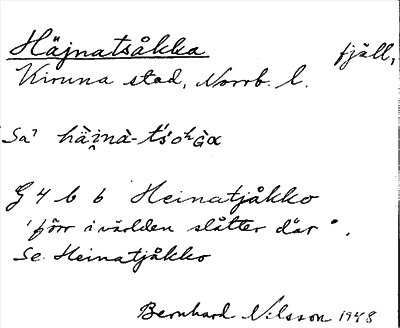 Häjnatsåkka fjäll,
Kiruna stad, Norrb. l.
Sa' häi̯nà-t's'oʰGα
G 4 b 6 Heinatjåkko
'förr i världen slåtter där'.
Se. Heinatjåkko
Bernhard Nilsson 1948